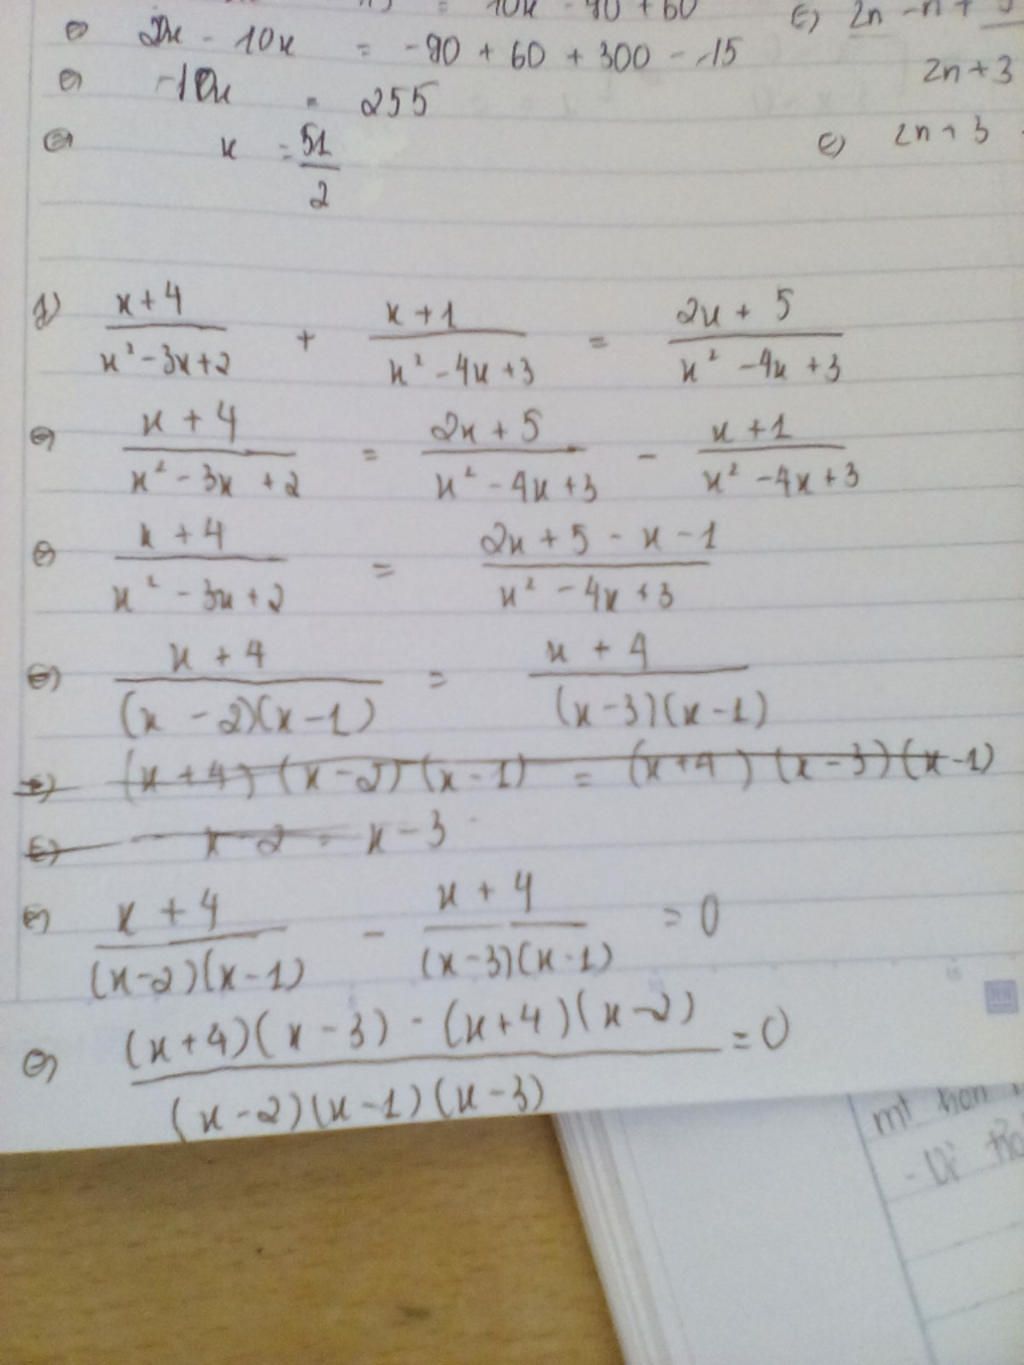 = 10x - 90 + 60
⇔ 2x - 10x = -90 + 60 + 300 - 15
⇔ -10x = 255
⇔ x = 51/2
⇔ 2n - n +
2n + 3
⇔ 2n + 3
d) (x + 4)/(x² - 3x + 2) + (x + 1)/(x² - 4x + 3) = (2x + 5)/(x² - 4x + 3)
⇔ (x + 4)/(x² - 3x + 2) = (2x + 5)/(x² - 4x + 3) - (x + 1)/(x² - 4x + 3)
⇔ (x + 4)/(x² - 3x + 2) = (2x + 5 - x - 1)/(x² - 4x + 3)
⇔ (x + 4)/((x - 2)(x - 1)) = (x + 4)/((x - 3)(x - 1))
⇔ (x + 4)(x - 2)(x - 1) = (x + 4)(x - 3)(x - 1)
⇔ x - 2 = x - 3
⇔ (x + 4)/((x - 2)(x - 1)) - (x + 4)/((x - 3)(x - 1)) = 0
⇔ ((x + 4)(x - 3) - (x + 4)(x - 2))/((x - 2)(x - 1)(x - 3)) = 0